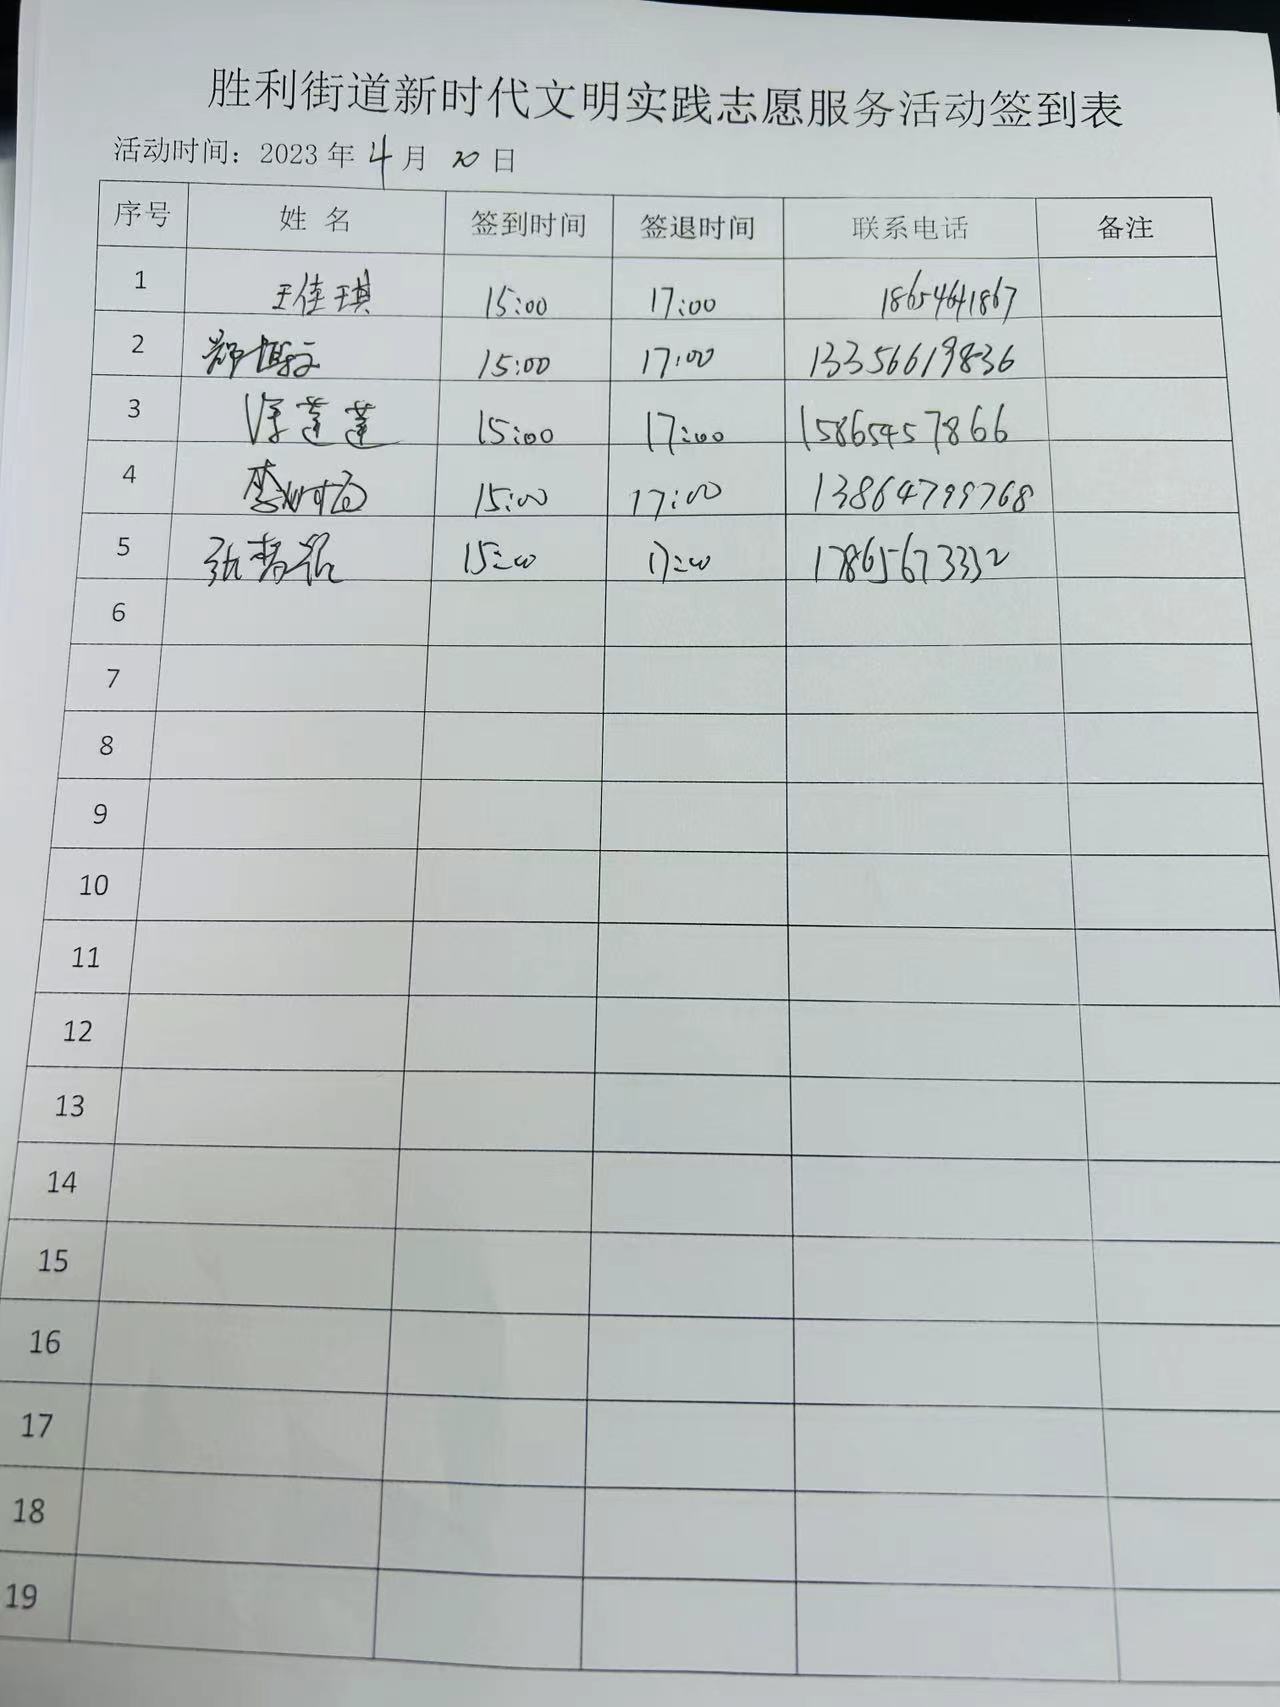 胜利街道新时代文明实践志愿服务活动签到表
活动时间：2023 年 4 月 20 日
序号 姓 名 签到时间 签退时间 联系电话 备注
1 王佳琪 15:00 17:00 18654641867
2 15:00 17:00 13356619836
3 徐莲莲 15:00 17:00 15865457866
4 15:00 17:00 13864799768
5 15:00 17:00 17865673332
6
7
8
9
10
11
12
13
14
15
16
17
18
19